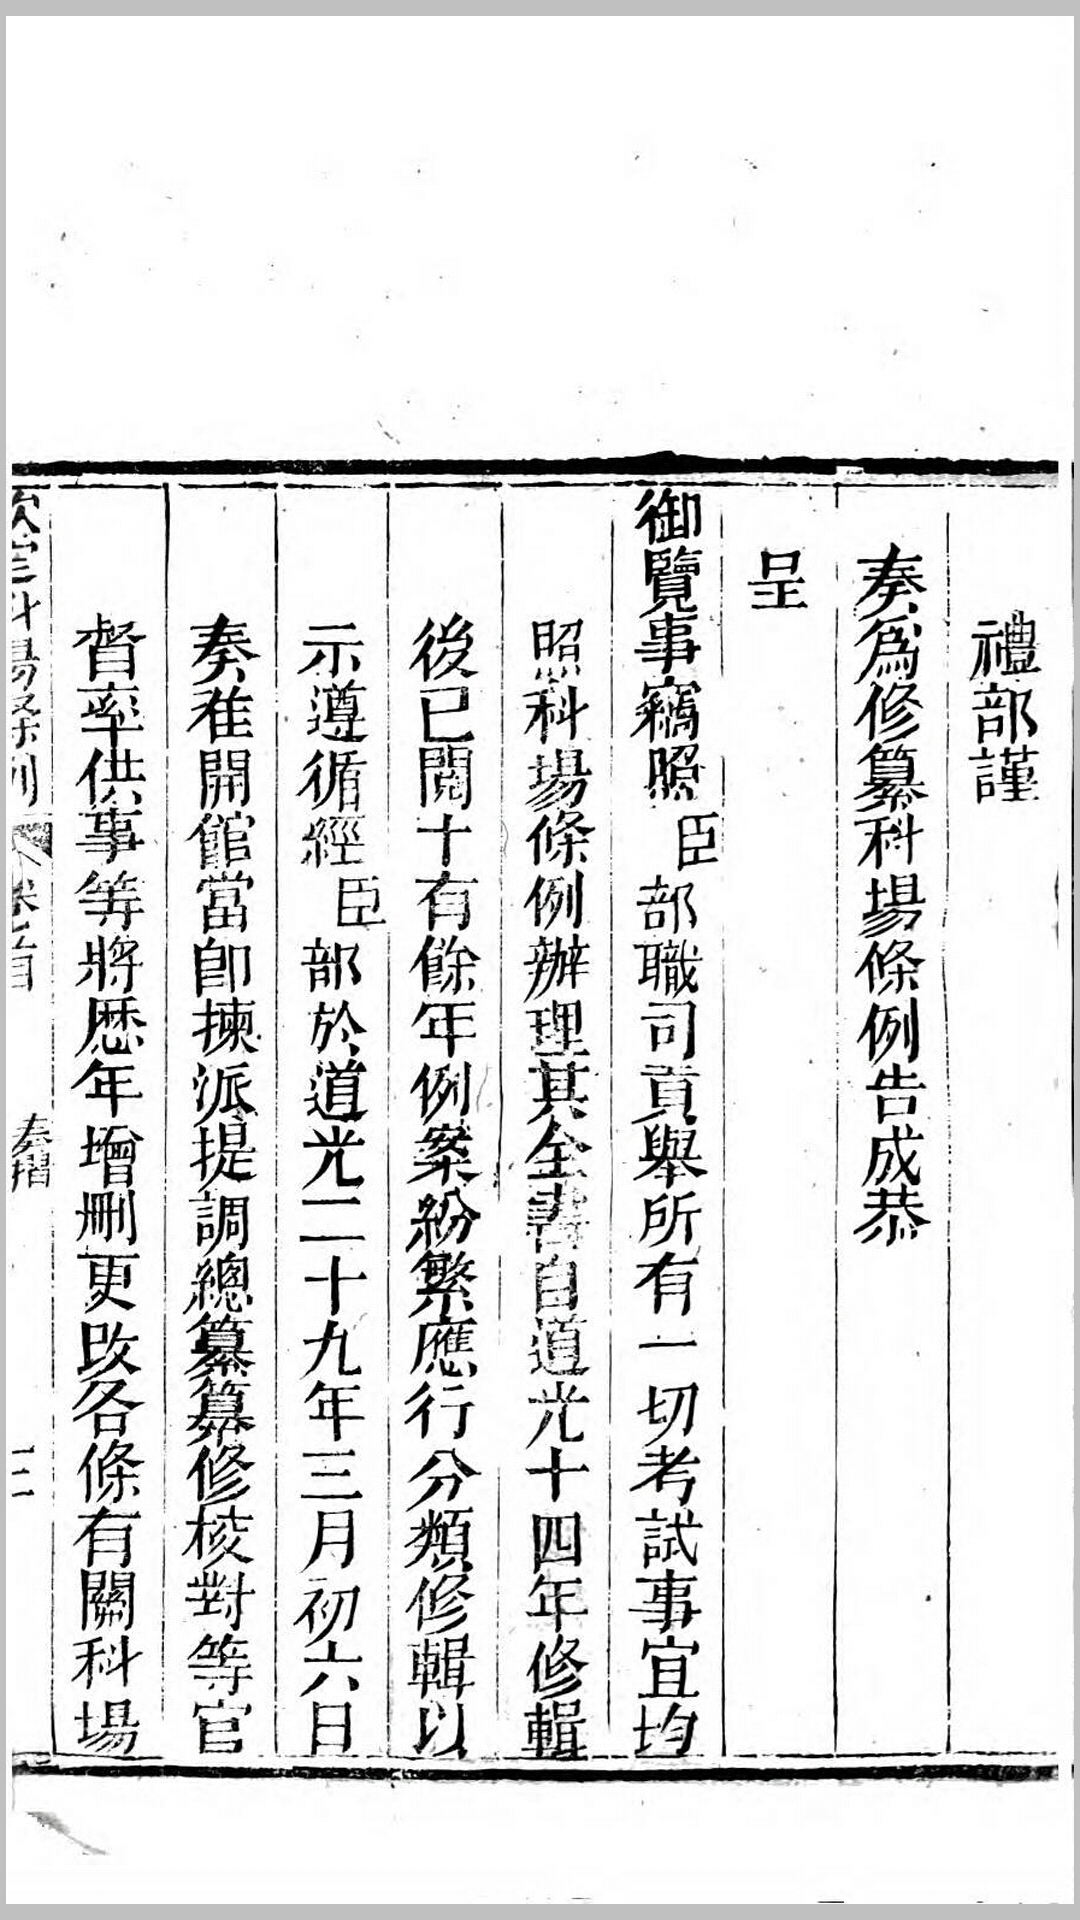 禮部謹
奏為修纂科場條例告成恭
呈
御覽事竊照臣部職司貢舉所有一切考試事宜均
照科場條例辦理其全書自道光十四年修輯
後已閱十有餘年例案紛繁應行分類修輯以
示遵循經臣部於道光二十九年三月初六日
奏准開館當卽揀派提調總纂纂修校對等官
督率供事等將歷年增刪更改各條有關科場
欽定科場條例 卷首 奏摺